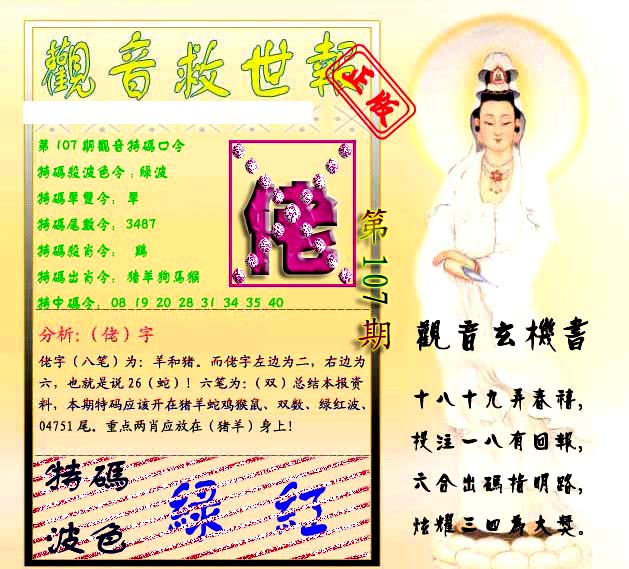 觀音救世報
正版
第107期觀音特碼口令
特碼殺波色令:綠波
特碼單雙令: 單
特碼尾數令: 3487
特碼殺肖令: 鷄
特碼出肖令: 豬羊狗馬猴
特中碼令: 08 19 20 28 31 34 35 40
佬
第107期
分析:(佬)字
佬字(八笔)为:羊和猪。而佬字左边为二,右边为
六,也就是说26(蛇)!六笔为:(双)总结本报资
料,本期特码应该开在猪羊蛇鸡猴鼠、双数、绿红波、
04751尾。重点两肖应放在(猪羊)身上!
特碼
波色
綠 紅
觀音玄機書
十八十九弄春禧,
投注一八有回報,
六合出碼指明路,
炫耀三四為大獎。